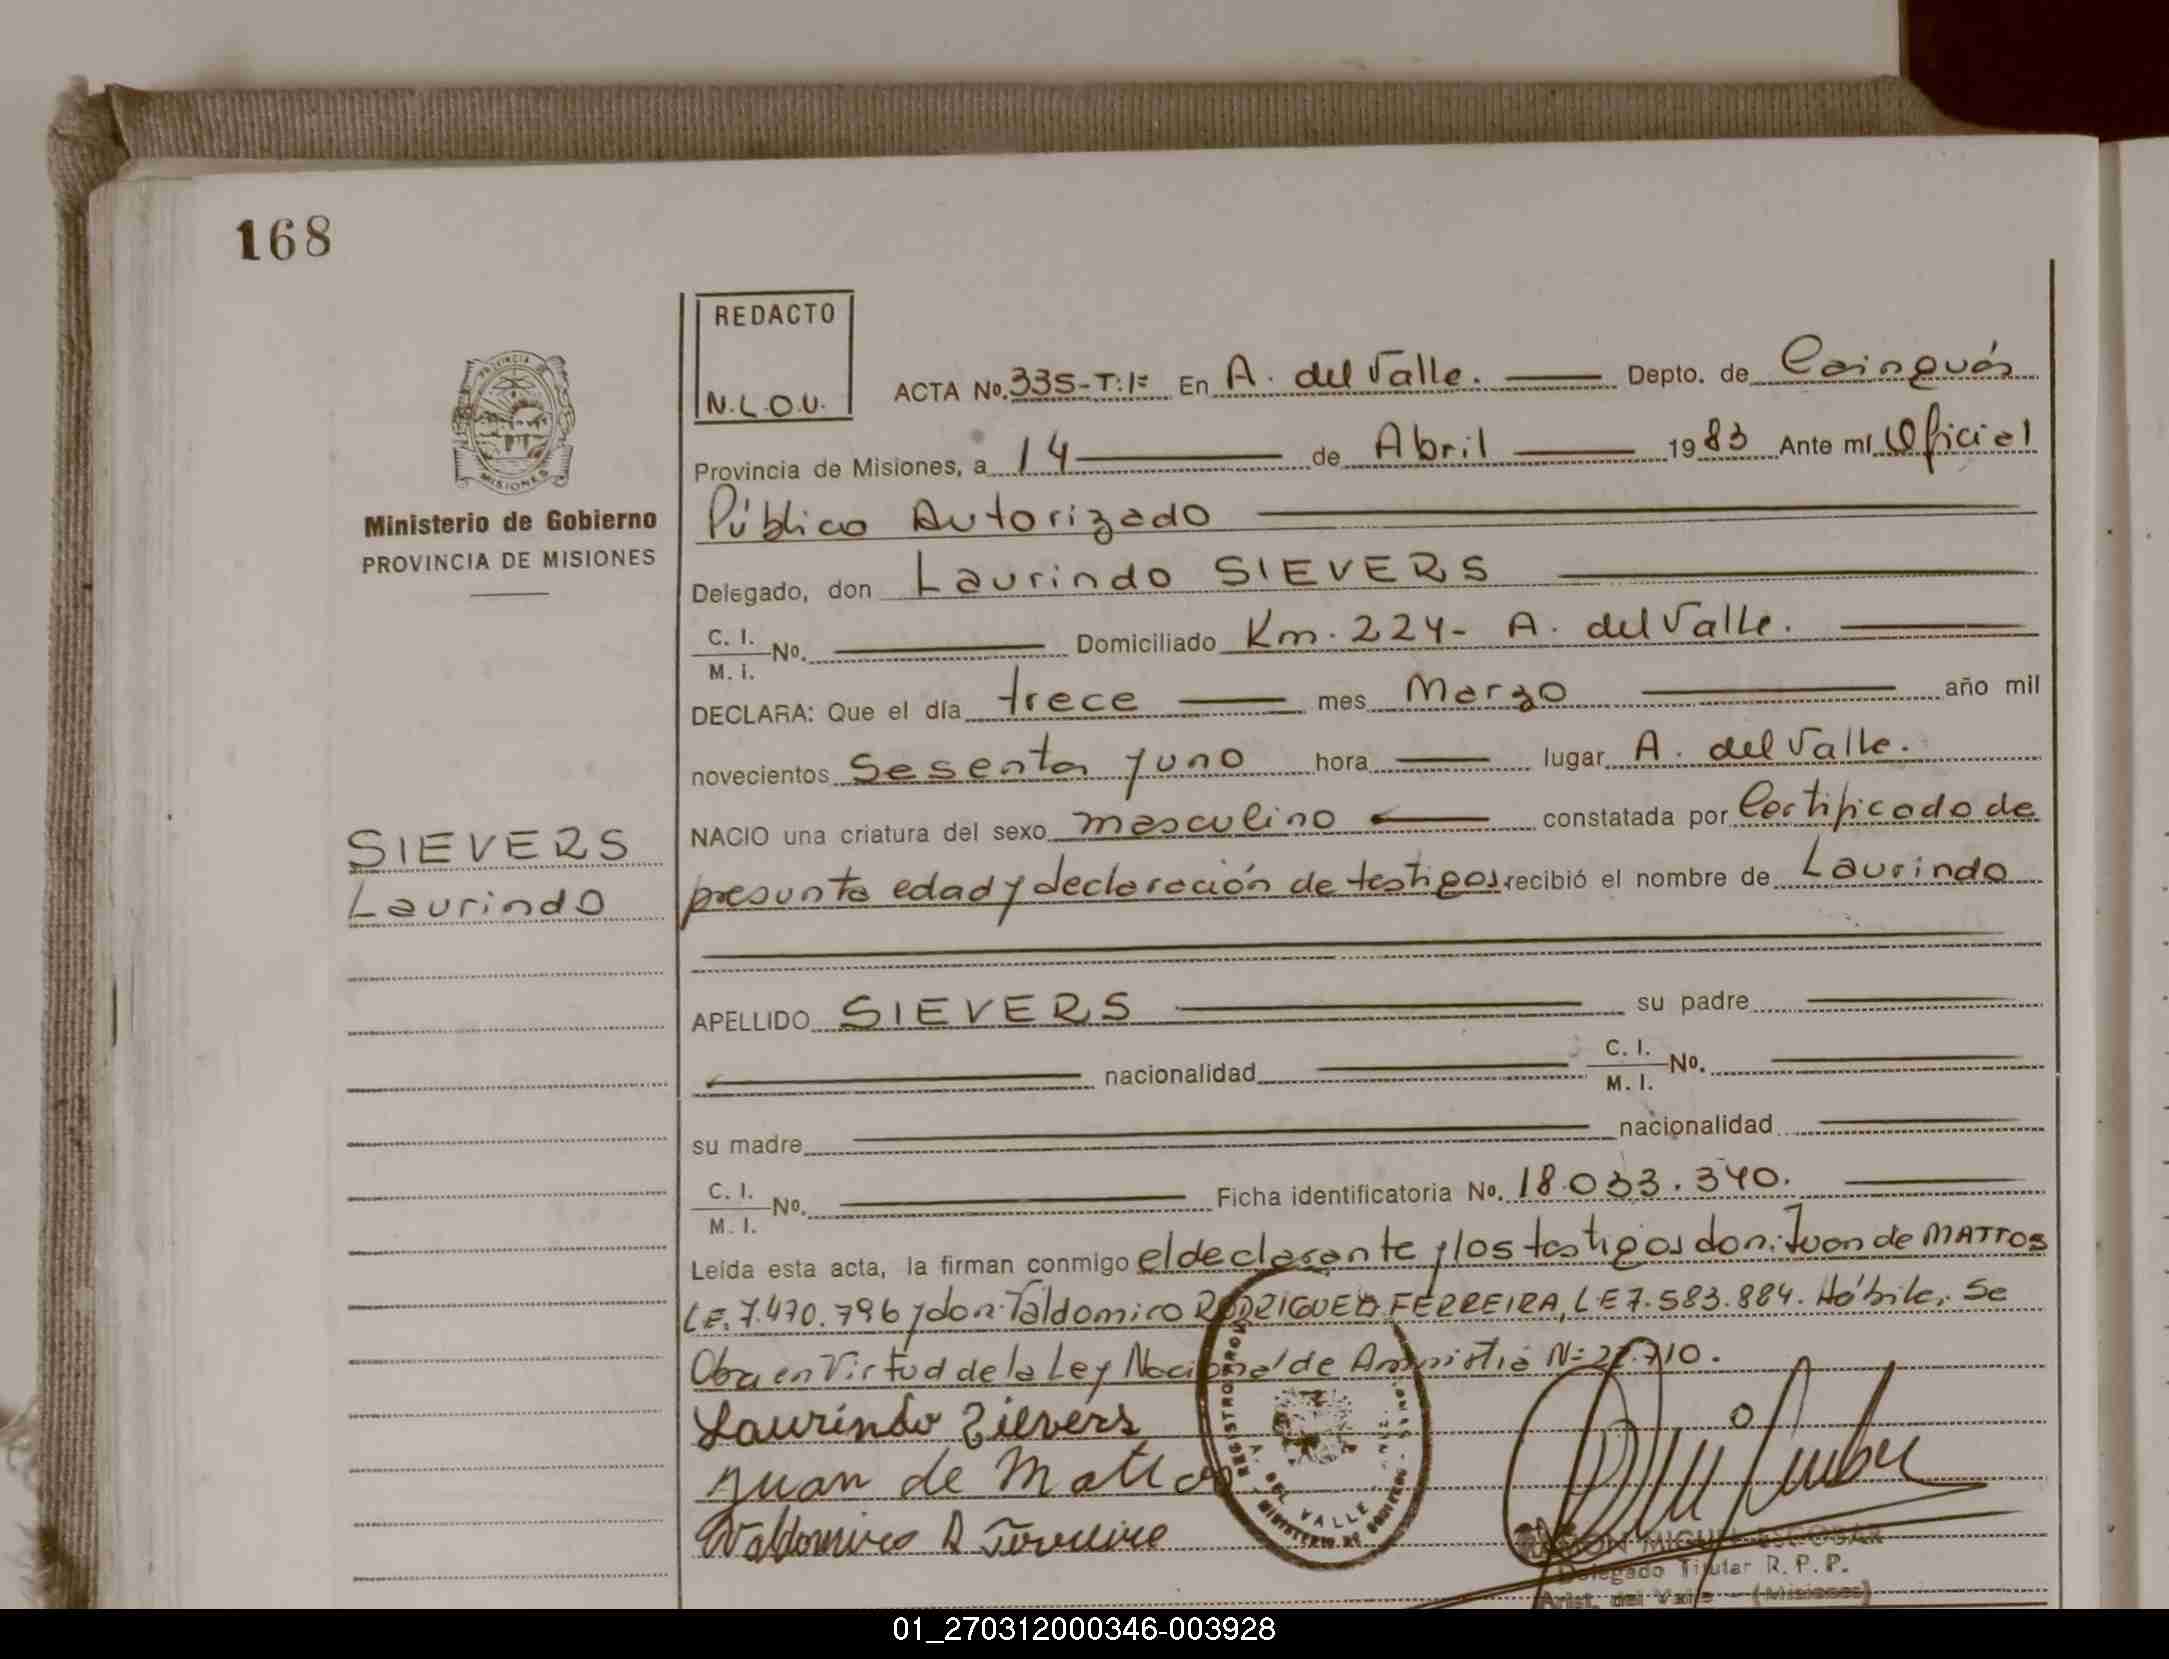 168
REDACTO
N.L.O.U.
PROVINCIA
MISIONES
Ministerio de Gobierno
PROVINCIA DE MISIONES
ACTA No. 335-T:1= En A. del Valle. Depto. de Cainguás
Provincia de Misiones, a 14 de Abril 1983 Ante mí Oficial
Público Autorizado
Delegado, don Laurindo SIEVERS
C. I. / M. I. No. Domiciliado Km. 224- A. del Valle.
DECLARA: Que el día trece mes Marzo año mil
novecientos Sesenta y uno hora lugar A. del Valle.
NACIO una criatura del sexo masculino constatada por Certificado de
presunta edad y declaración de testigos recibió el nombre de Laurindo
SIEVERS
Laurindo
APELLIDO SIEVERS su padre
nacionalidad C. I. / M. I. No.
su madre nacionalidad
C. I. / M. I. No. Ficha identificatoria No. 18.033.340.
Leída esta acta, la firman conmigo el declarante y los testigos don: Juan de MATTOS
LE. 7.470.796 y don: Valdomiro RODRIGUES FERREIRA, LE 7.583.884. Hábiles, Se
Obra en Virtud de la Ley Nacional de Amnistia N= 22.710.
Laurindo Zievers
Juan de Mattos
Valdomiro R Ferreira
A. DEL VALLE
MINISTERIO DE GOBIERNO
RAMON MIGUEL ESCOBAR
Delegado Titular R. P. P.
Arist. del Valle - (Misiones)
01_270312000346-003928